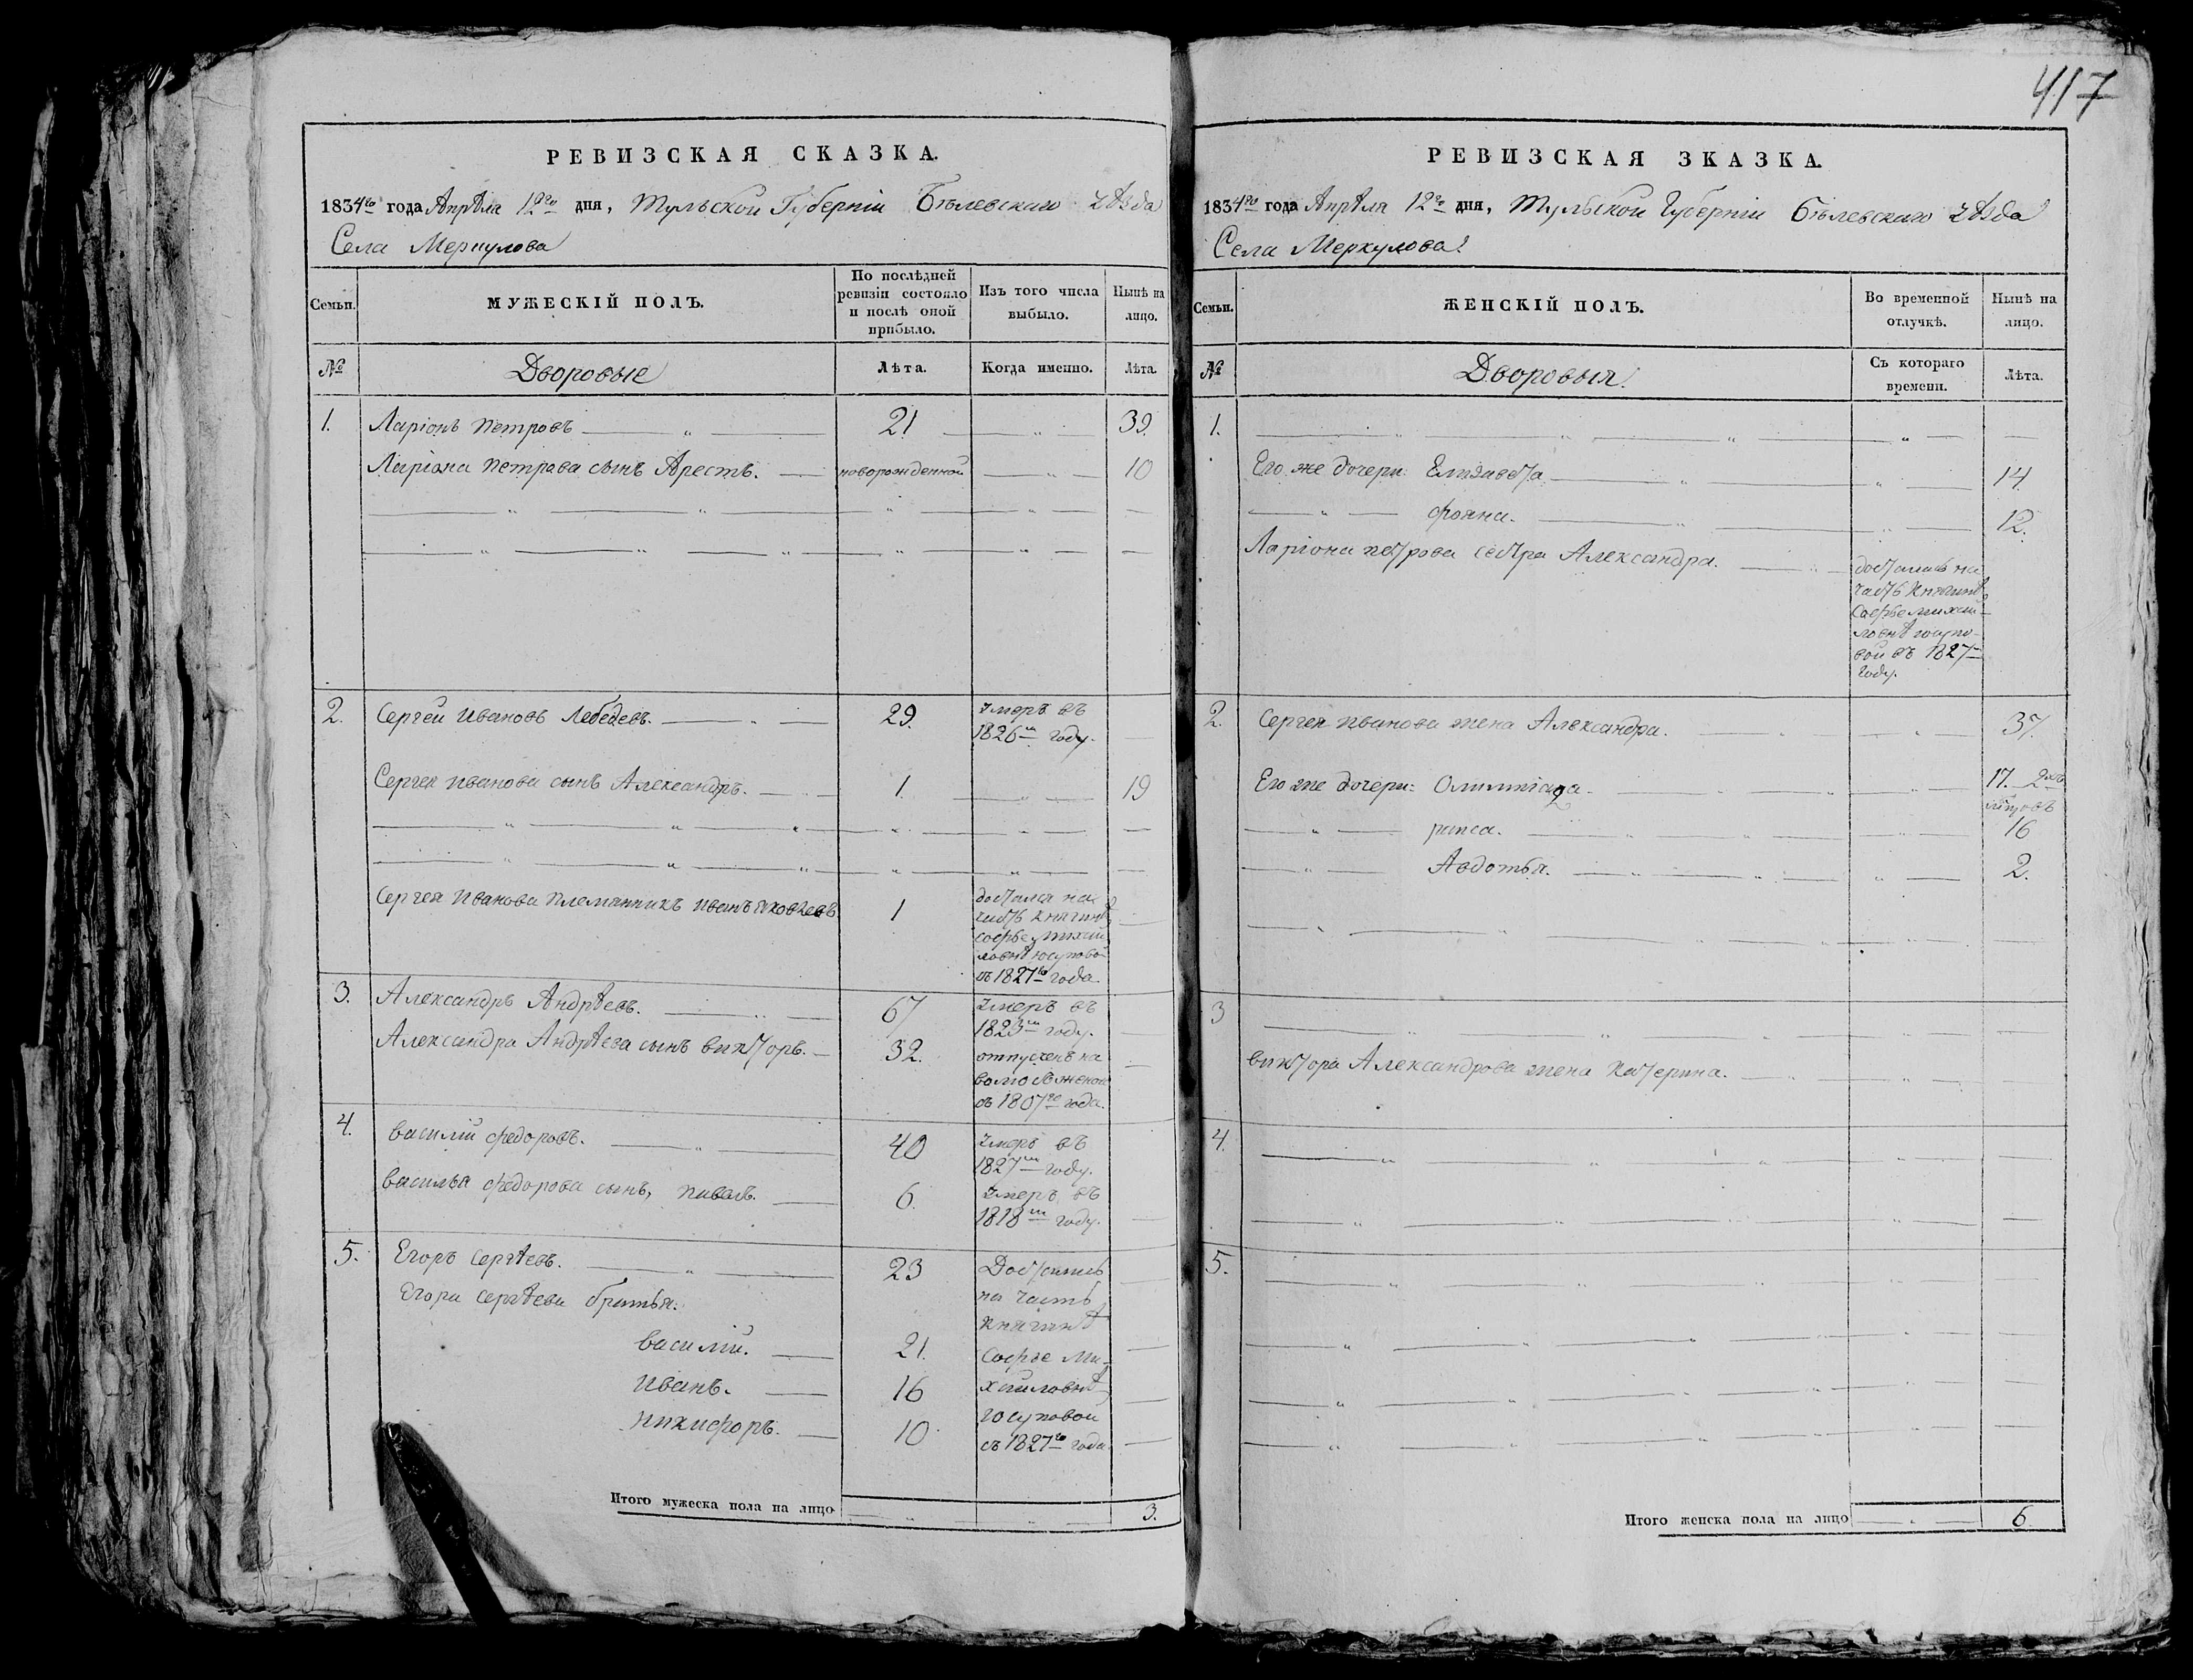 417
РЕВИЗСКАЯ СКАЗКА.
1834го года Апрѣля 12го дня, Тульской Губерніи Бѣлевскаго уѣзда
Села Меркулова
Семьи.
МУЖЕСКІЙ ПОЛЪ.
По послѣдней
ревизіи состояло
и послѣ оной
прибыло.
Изъ того числа
выбыло.
Нынѣ на
лицо.
№
Дворовые
Лѣта.
Когда именно.
Лѣта.
1. Ларіонъ Петровъ 21 39
Ларіона Петрова сынъ Арестъ. новорожденной 10
2. Сергей Ивановъ Лебедевъ. 29. умеръ въ
1826м году.
Сергея Иванова сынъ Александръ. 1. 19
Сергея Иванова племянникъ Иванъ Яковлевъ 1 достался на
часть Княгинѣ
Софье Михай
ловнѣ Юсуповой
въ 1827го года.
3. Александръ Андрѣевъ. 67 умеръ въ
1823м году.
Александра Андрѣева сынъ Викторъ. 32. отпущенъ на
съ 1807го года.
4. Василій Федоровъ. 40 умеръ въ
1827м году.
Василья Федорова сынъ, Павелъ. 6. умеръ въ
1818м году.
5. Егоръ Сергѣевъ. 23 Достались
Егора Сергѣева братья. на часть
Княгинѣ
Василій. 21. Софье Ми-
Иванъ. 16 хайловнѣ
Юсуповой
Никифоръ. 10 съ 1827го года
Итого мужеска пола на лицо 3.
РЕВИЗСКАЯ ЗКАЗКА.
1834го года Апрѣля 12го дня, Тульской Губерніи Бѣлевскаго уѣзда
Села Меркулова.
Семьи.
ЖЕНСКІЙ ПОЛЪ.
Во временной
отлучкѣ.
Нынѣ на
лицо.
№
Дворовыя.
Съ котораго
времени.
Лѣта.
1.
Его же дочери: Елизавета 14
Фояна. 12.
Ларіона Петрова сестра Александра. досталась на
часть Княгинѣ
Софье Михай-
ловнѣ Юсупо-
вой въ 1827м
году.
2. Сергея Иванова жена Александра. 37.
Его же дочери: Олимпіада. 17. 2хъ
16
Авдотья. 2.
3
Виктора Александрова жена Катерина.
4.
5.
Итого женска пола на лицо 6.